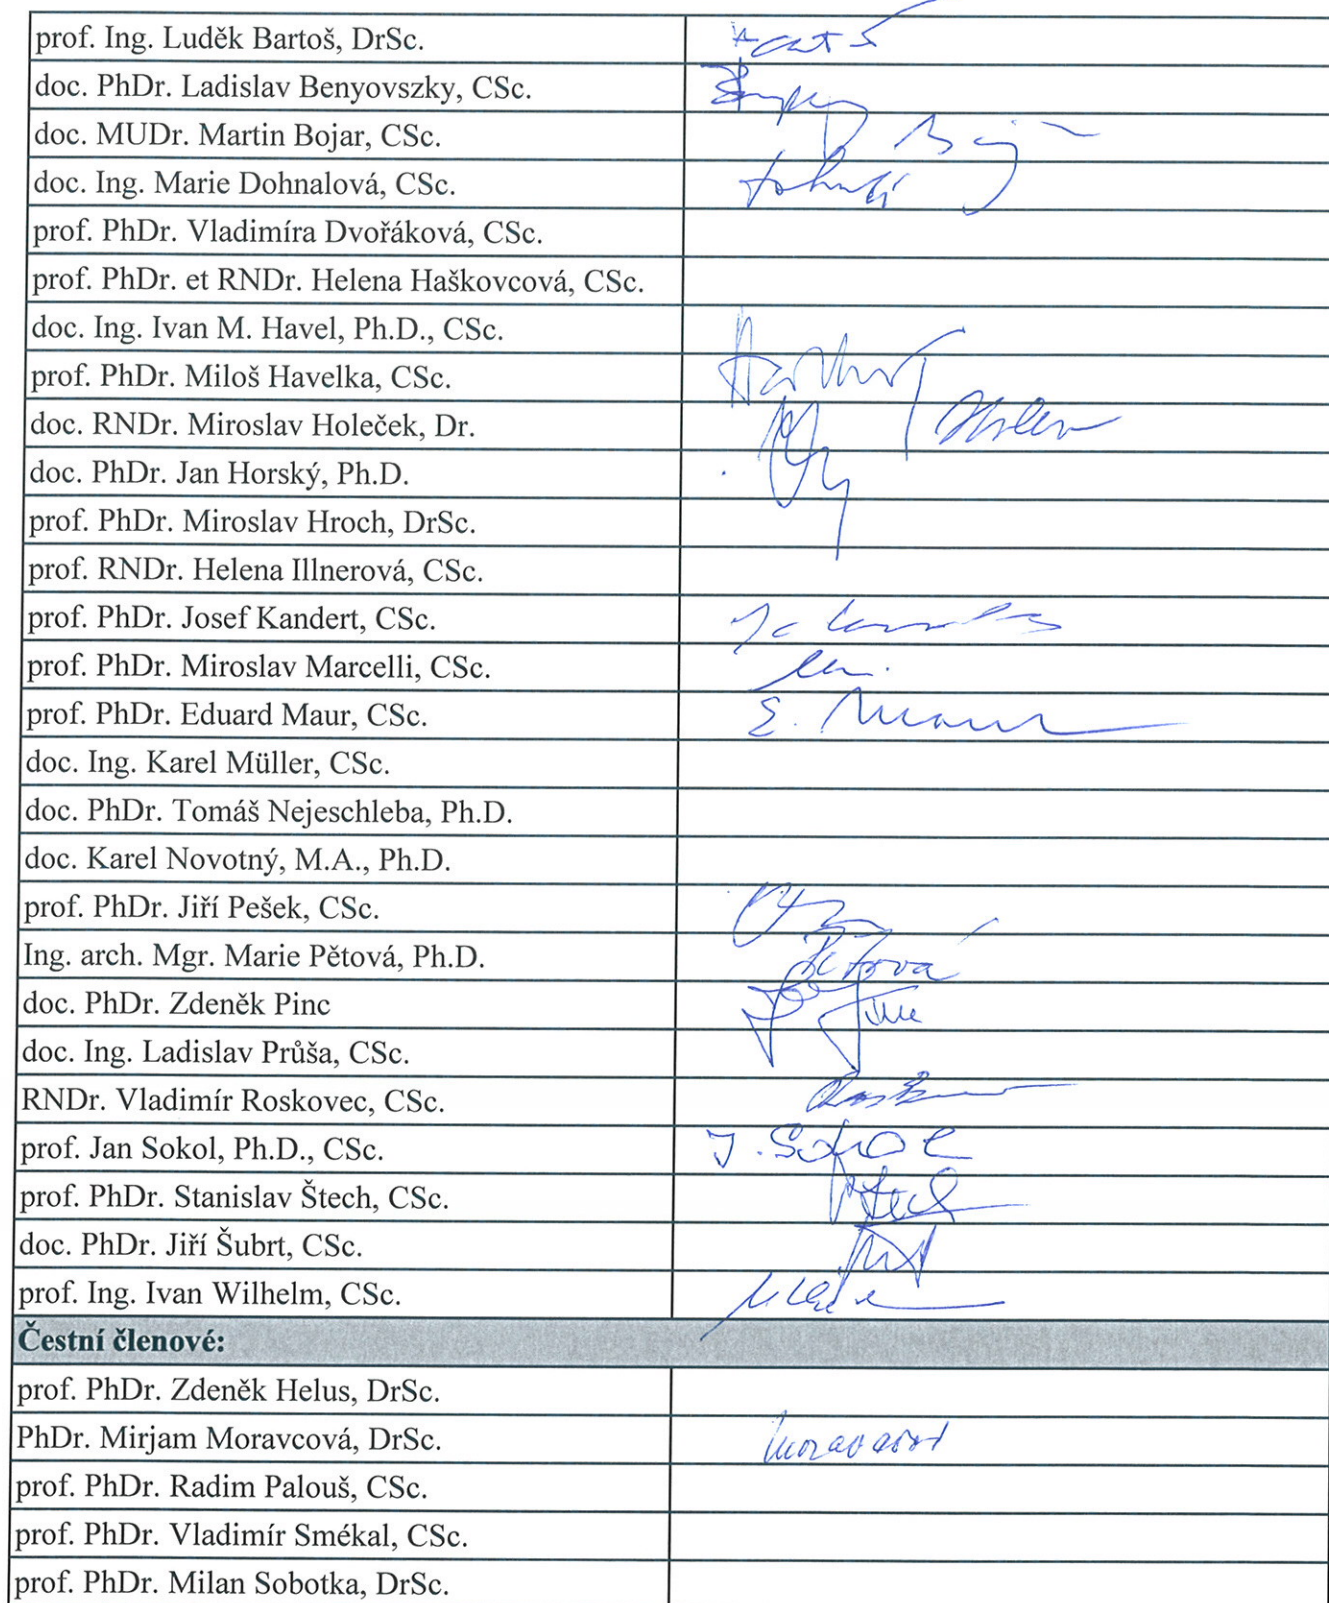 prof. Ing. Luděk Bartoš, DrSc.
doc. PhDr. Ladislav Benyovszky, CSc.
doc. MUDr. Martin Bojar, CSc.
doc. Ing. Marie Dohnalová, CSc.
prof. PhDr. Vladimíra Dvořáková, CSc.
prof. PhDr. et RNDr. Helena Haškovcová, CSc.
doc. Ing. Ivan M. Havel, Ph.D., CSc.
prof. PhDr. Miloš Havelka, CSc.
doc. RNDr. Miroslav Holeček, Dr.
doc. PhDr. Jan Horský, Ph.D.
prof. PhDr. Miroslav Hroch, DrSc.
prof. RNDr. Helena Illnerová, CSc.
prof. PhDr. Josef Kandert, CSc.
prof. PhDr. Miroslav Marcelli, CSc.
prof. PhDr. Eduard Maur, CSc. E. Maur
doc. Ing. Karel Müller, CSc.
doc. PhDr. Tomáš Nejeschleba, Ph.D.
doc. Karel Novotný, M.A., Ph.D.
prof. PhDr. Jiří Pešek, CSc.
Ing. arch. Mgr. Marie Pětová, Ph.D. Pětová
doc. PhDr. Zdeněk Pinc
doc. Ing. Ladislav Průša, CSc.
RNDr. Vladimír Roskovec, CSc.
prof. Jan Sokol, Ph.D., CSc. J. Sokol
prof. PhDr. Stanislav Štech, CSc. Štech
doc. PhDr. Jiří Šubrt, CSc.
prof. Ing. Ivan Wilhelm, CSc.
Čestní členové:
prof. PhDr. Zdeněk Helus, DrSc.
PhDr. Mirjam Moravcová, DrSc. Moravcová
prof. PhDr. Radim Palouš, CSc.
prof. PhDr. Vladimír Smékal, CSc.
prof. PhDr. Milan Sobotka, DrSc.